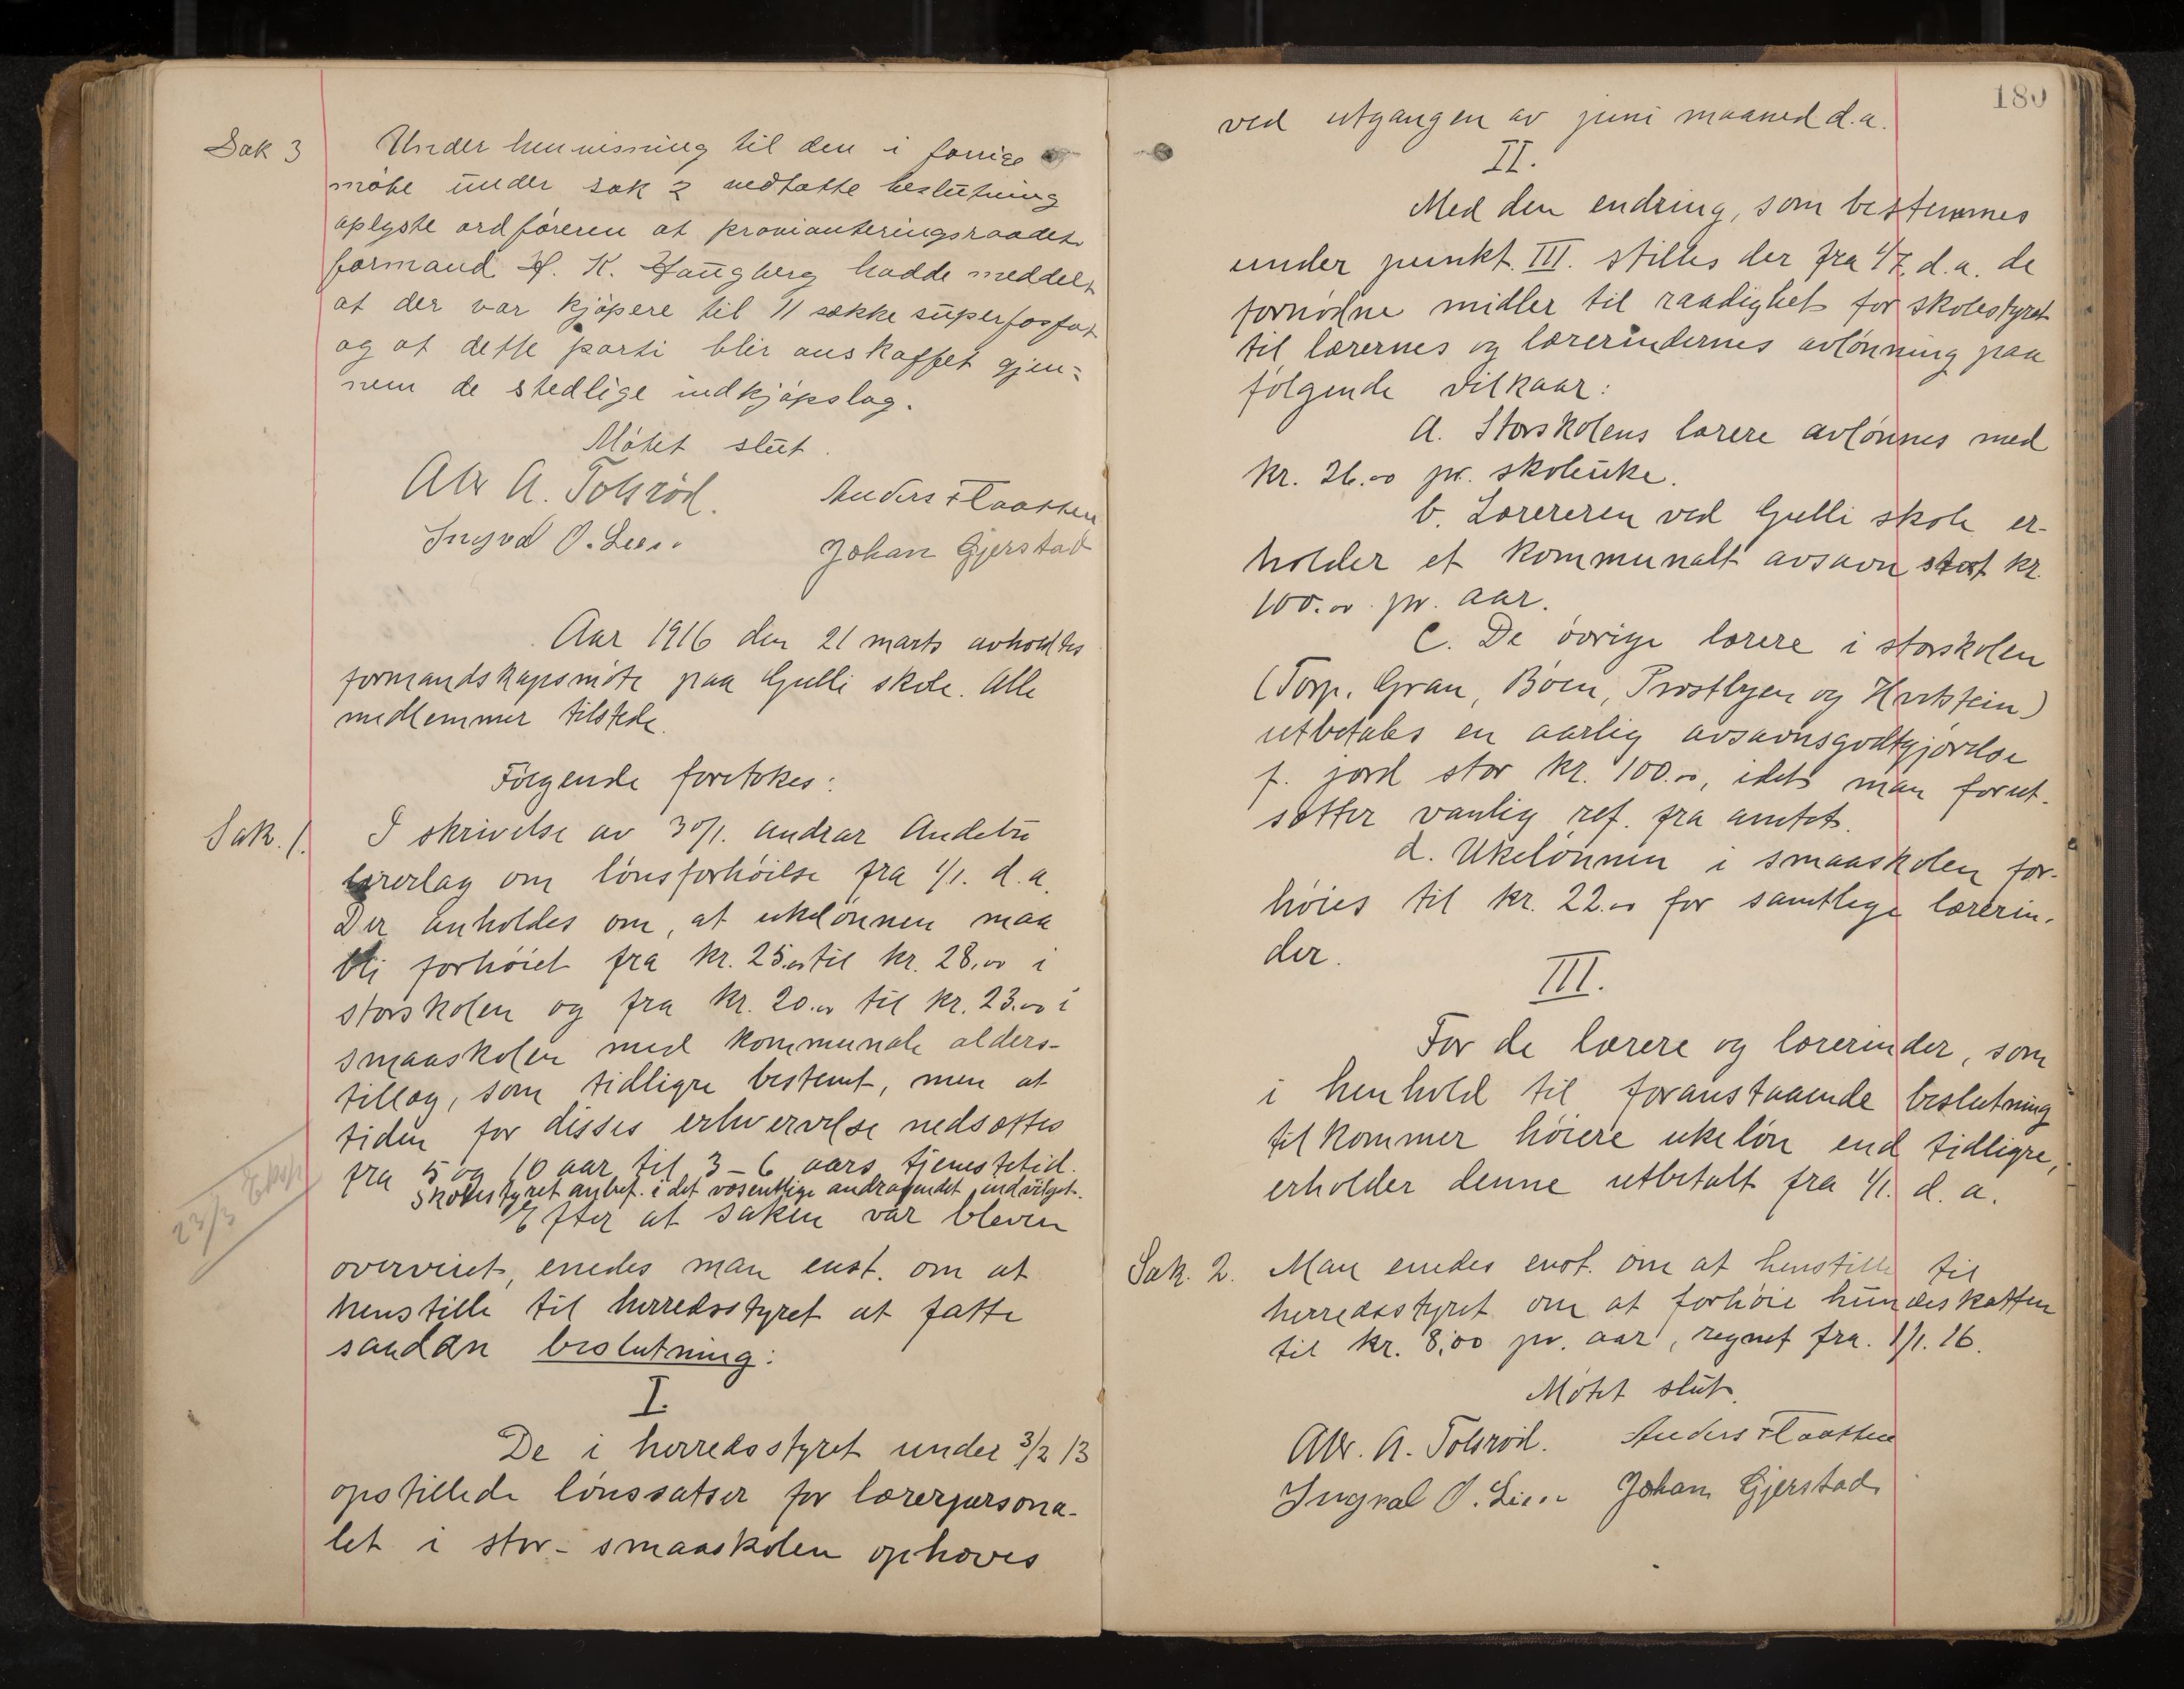 Sak 3 Under henvisning til den i forrige
møte under sak 2 vedtatte beslutning
oplyste ordføreren at provianteringsraadets
formand H. K. Haugberg hadde meddelt
at der var kjøpere til 11 sække superfosfat
og at dette parti blir anskaffet gjen-
nem de stedlige indkjøpslag.
Møtet slut.
Alv A. Tolsrød. Anders Flaatten
Ingval O. Lien Johan Gjerstad
Aar 1916 den 21 marts avholdtes
formandskapsmøte paa Gulli skole. Alle
medlemmer tilstede.
Følgende foretokes:
Sak. 1. I skrivelse av 30/1. andrar Andebu
lærerlag om lønsforhøielse fra 1/1. d.a.
Der anholdes om, at ukelønnen maa
bli forhøiet fra kr. 25.00 til kr. 28.00 i
storskolen og fra kr. 20.00 til kr. 23.00 i
smaaskolen med kommunale alders-
tillæg, som tidligre bestemt, men at
tiden for disses erhvervelse nedsættes
fra 5 og 10 aar til 3-6 aars tjenestetid.
Skolestyret anbef. i det væsentlige andragendet indvilget.
Efter at saken var bleven
overveiet, enedes man enst. om at
henstille til herredsstyret at fatte
saadan beslutning:
Eksp.
23/3
I.
De i herredsstyret under 3/2 13
opstillede lønssatser for lærerpersona-
let i stor- smaaskolen ophæves
180
ved utgangen av juni maaned d.a.
II.
Med den endring, som bestemmes
under punkt III. stilles der fra 1/7. d.a. de
fornødne midler til raadighet for skolestyret
til lærernes og lærerindernes avlønning paa
følgende vilkaar:
a. Storskolens lærere avlønnes med
kr. 26.00 pr. skoleuke.
b. Læreren ved Gulli skole er-
holder et kommunalt avsavn stort kr.
100.00 pr. aar.
c. De øvrige lærere i storskolen
(Torp, Gran, Bøen, Prestbyen og Hvitstein)
utbetales en aarlig avsavnsgodtgjørelse
f. jord stor kr. 100.00, idet man forut-
sætter vanlig ref. fra amtet.
d. Ukelønnen i smaaskolen for-
høies til kr. 22.00 for samtlige lærerin-
der.
III.
For de lærere og lærerinder, som
i henhold til foranstaaende beslutning
tilkommer høiere ukeløn end tidligre,
erholder denne utbetalt fra 1/1. d.a.
Sak. 2. Man enedes enst. om at henstille til
herredsstyret om at forhøie hundeskatten
til kr. 8,00 pr. aar, regnet fra 1/1. 16.
Møtet slut.
Alv. A. Tolsrød. Anders Flaatten
Ingval O. Lien Johan Gjerstad